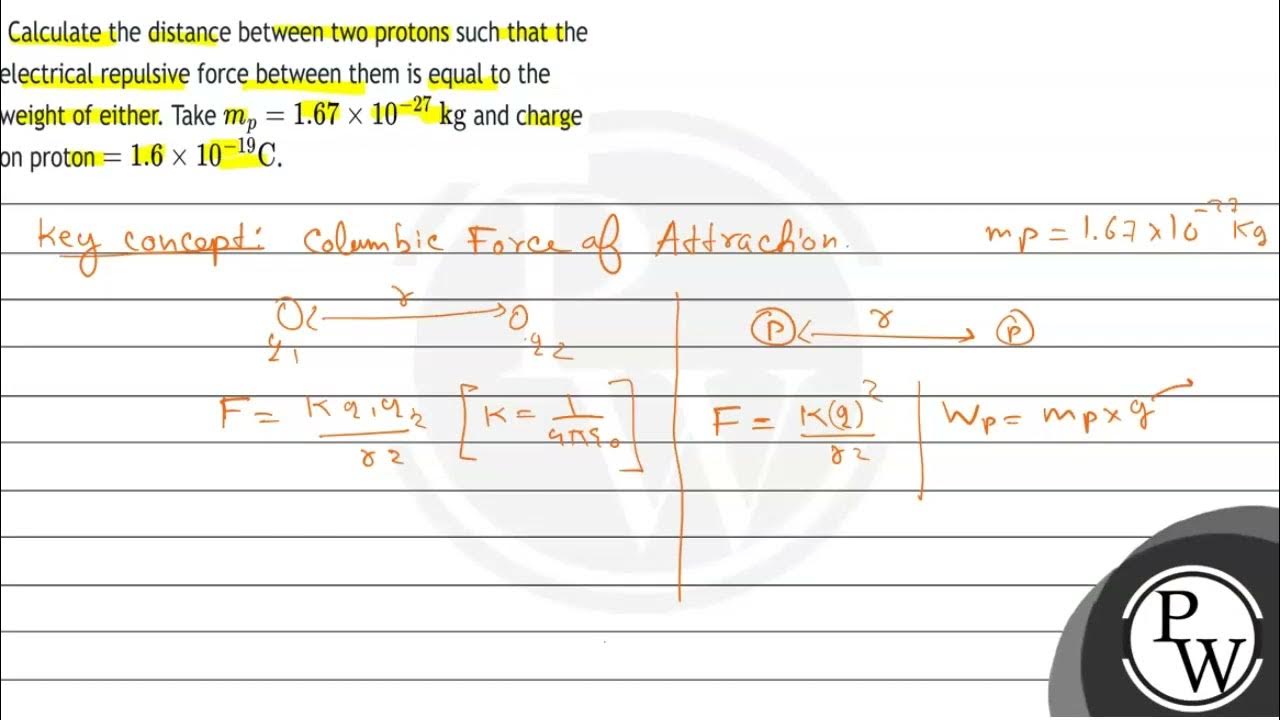 Calculate the distance between two protons such that the
electrical repulsive force between them is equal to the
weight of either. Take mₚ = 1.67 × 10⁻²⁷ kg and charge
on proton = 1.6 × 10⁻¹⁹C.
Key concept: Columbic Force of Attraction.
mp = 1.67 × 10⁻²⁷ Kg
r
q₁ q₂
F = K q₁q₂ / r² [K = 1 / 4πε₀]
r
P P
F = K(q)² / r²
Wp = mp × g
P
W
PW